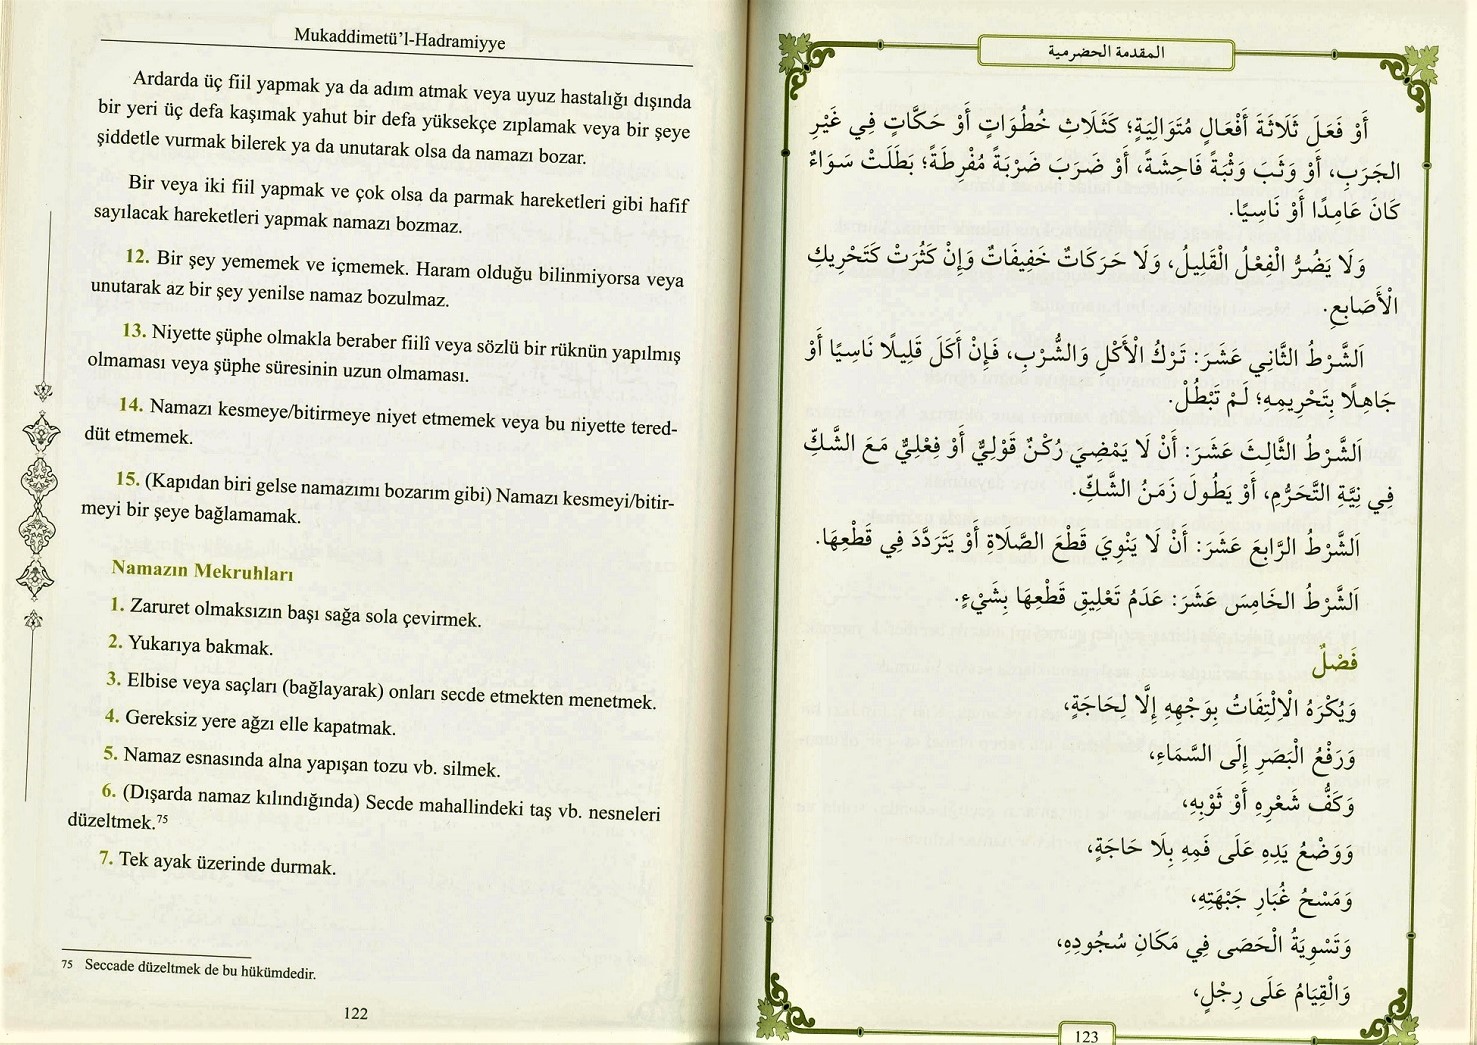 Mukaddimetü'l-Hadramiyye
Ardarda üç fiil yapmak ya da adım atmak veya uyuz hastalığı dışında
bir yeri üç defa kaşımak yahut bir defa yüksekçe zıplamak veya bir şeye
şiddetle vurmak bilerek ya da unutarak olsa da namazı bozar.
Bir veya iki fiil yapmak ve çok olsa da parmak hareketleri gibi hafif
sayılacak hareketleri yapmak namazı bozmaz.
12. Bir şey yememek ve içmemek. Haram olduğu bilinmiyorsa veya
unutarak az bir şey yenilse namaz bozulmaz.
13. Niyette şüphe olmakla beraber fiilî veya sözlü bir rüknün yapılmış
olmaması veya şüphe süresinin uzun olmaması.
14. Namazı kesmeye/bitirmeye niyet etmemek veya bu niyette tered-
düt etmemek.
15. (Kapıdan biri gelse namazımı bozarım gibi) Namazı kesmeyi/bitir-
meyi bir şeye bağlamamak.
Namazın Mekruhları
1. Zaruret olmaksızın başı sağa sola çevirmek.
2. Yukarıya bakmak.
3. Elbise veya saçları (bağlayarak) onları secde etmekten menetmek.
4. Gereksiz yere ağzı elle kapatmak.
5. Namaz esnasında alna yapışan tozu vb. silmek.
6. (Dışarda namaz kılındığında) Secde mahallindeki taş vb. nesneleri
düzeltmek.75
7. Tek ayak üzerinde durmak.
75 Seccade düzeltmek de bu hükümdedir.
122
المقدمة الحضرمية
أَوْ فَعَلَ ثَلَاثَةَ أَفْعَالٍ مُتَوَالِيَةٍ؛ كَثَلَاثِ خُطُوَاتٍ أَوْ حَكَّاتٍ فِي غَيْرِ
الجَرَبِ، أَوْ وَثَبَ وَثْبَةً فَاحِشَةً، أَوْ ضَرَبَ ضَرْبَةً مُفْرِطَةً؛ بَطَلَتْ سَوَاءٌ
كَانَ عَامِدًا أَوْ نَاسِيًا.
وَلَا يَضُرُّ الْفِعْلُ الْقَلِيلُ، وَلَا حَرَكَاتٌ خَفِيفَاتٌ وَإِنْ كَثُرَتْ كَتَحْرِيكِ
الْأَصَابِعِ.
اَلشَّرْطُ الثَّانِي عَشَرَ: تَرْكُ الْأَكْلِ وَالشُّرْبِ، فَإِنْ أَكَلَ قَلِيلًا نَاسِيًا أَوْ
جَاهِلًا بِتَحْرِيمِهِ؛ لَمْ تَبْطُلْ.
اَلشَّرْطُ الثَّالِثَ عَشَرَ: أَنْ لَا يَمْضِيَ رُكْنٌ قَوْلِيٌّ أَوْ فِعْلِيٌّ مَعَ الشَّكِّ
فِي نِيَّةِ التَّحَرُّمِ، أَوْ يَطُولَ زَمَنُ الشَّكِّ.
اَلشَّرْطُ الرَّابِعَ عَشَرَ: أَنْ لَا يَنْوِيَ قَطْعَ الصَّلَاةِ أَوْ يَتَرَدَّدَ فِي قَطْعِهَا.
اَلشَّرْطُ الخَامِسَ عَشَرَ: عَدَمُ تَعْلِيقِ قَطْعِهَا بِشَيْءٍ.
فَصْلٌ
وَيُكْرَهُ الْاِلْتِفَاتُ بِوَجْهِهِ إِلَّا لِحَاجَةٍ،
وَرَفْعُ الْبَصَرِ إِلَى السَّمَاءِ،
وَكَفُّ شَعْرِهِ أَوْ ثَوْبِهِ،
وَوَضْعُ يَدِهِ عَلَى فَمِهِ بِلَا حَاجَةٍ،
وَمَسْحُ غُبَارِ جَبْهَتِهِ،
وَتَسْوِيَةُ الْحَصَى فِي مَكَانِ سُجُودِهِ،
وَالْقِيَامُ عَلَى رِجْلٍ،
123